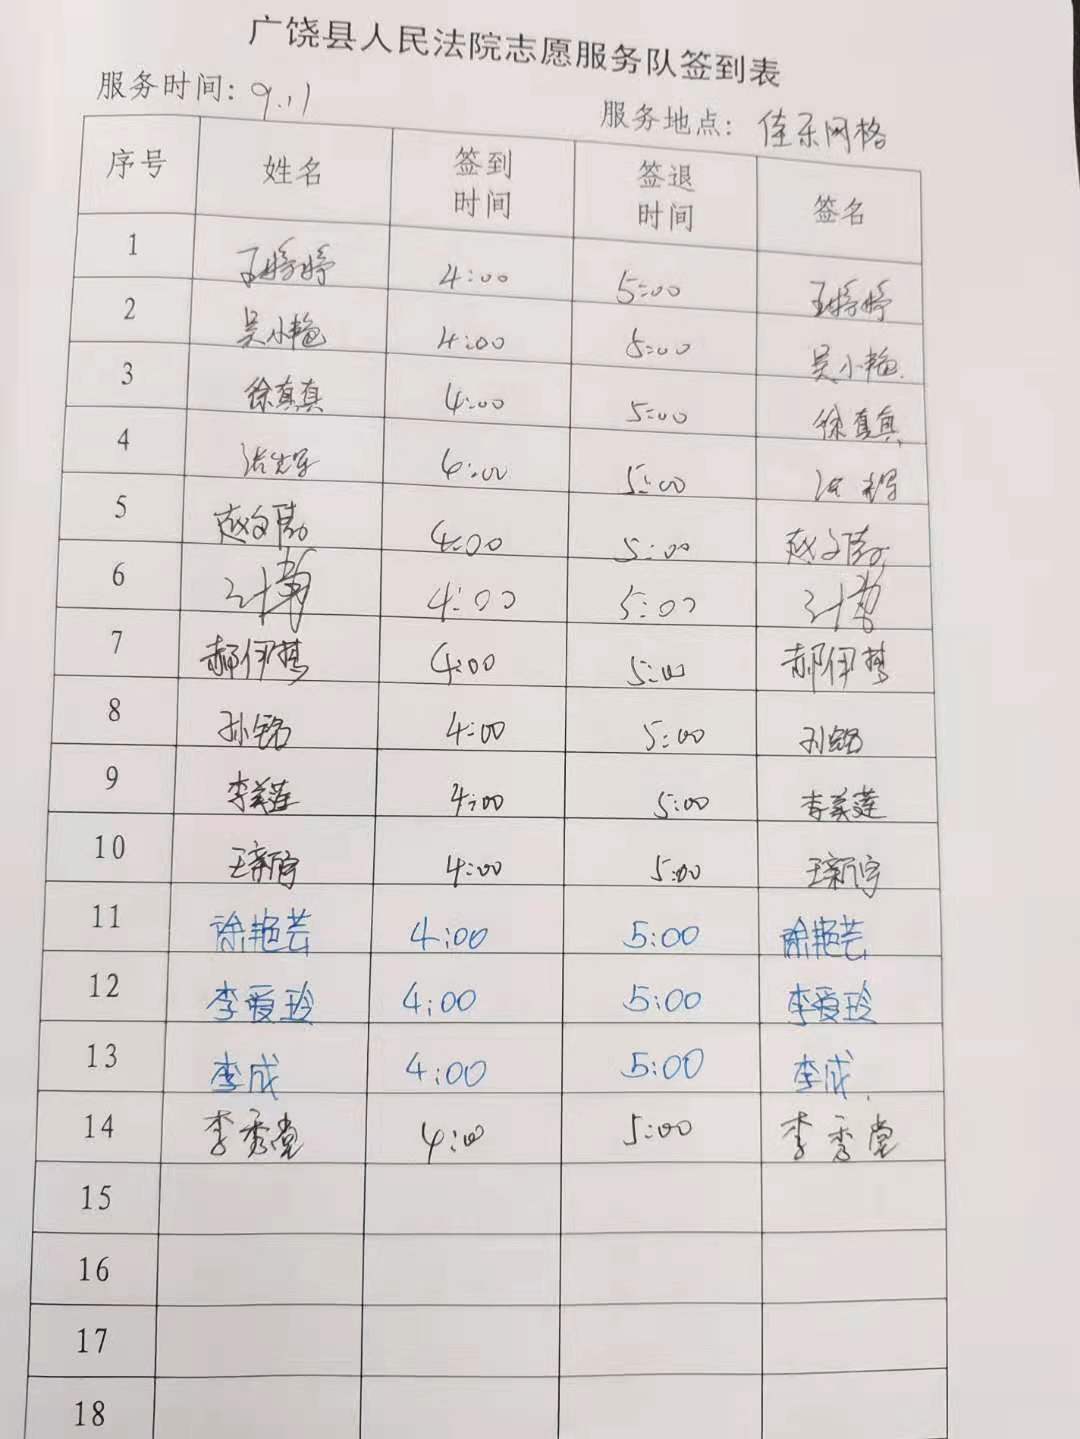 广饶县人民法院志愿服务队签到表
服务时间: 9.11
服务地点: 佳乐网格
序号 姓名 签到时间 签退时间 签名
1 王婷婷 4:00 5:00 王婷婷
2 吴小艳 4:00 5:00 吴小艳
3 徐真真 4:00 5:00 徐真真
4 4:00 5:00
5 赵文 4:00 5:00 赵文
6 4:00 5:00
7 郝伊梦 4:00 5:00 郝伊梦
8 孙铭 4:00 5:00 孙铭
9 李美莲 4:00 5:00 李美莲
10 王新宇 4:00 5:00 王新宇
11 徐艳芸 4:00 5:00 徐艳芸
12 李爱玲 4:00 5:00 李爱玲
13 李成 4:00 5:00 李成
14 李秀堂 4:00 5:00 李秀堂
15
16
17
18